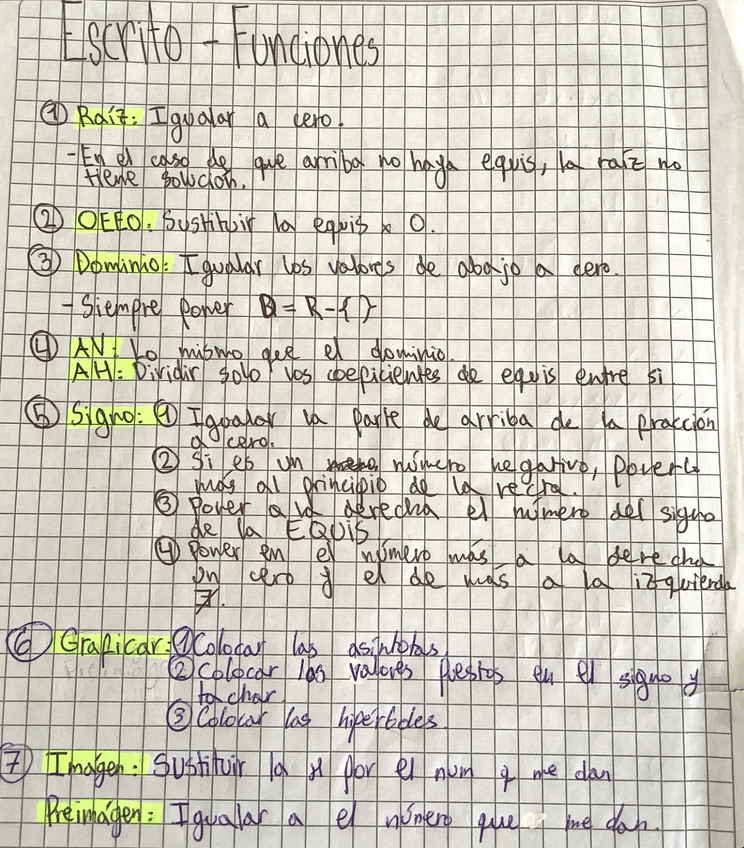 Escrito - Funciones
① Raíz: Igualar a cero.
- En el caso de que arriba no haya equis, la raíz no
tiene solución.
② OEEO: Sustituir la equis x 0.
③ Dominio: Igualar los valores de abajo a cero.
- Siempre poner D = R-{}
④ AN: Lo mismo que el dominio.
AH: Dividir solo los coeficientes de equis entre si
⑤ Signo: ① Igualar la parte de arriba de la fracción
a cero.
② Si es un número negativo, ponerlo
más al principio de la recta.
③ Poner a la derecha el número del signo
de la EQUIS
④ Poner en el número más a la derecha
un cero y el de más a la izquierda
∄.
⑥ Graficar: ① Colocar las asíntotas.
② Colocar los valores puestos en el signo y
tachar.
③ Colocar las hipérboles.
⑦ Imágen: Sustituir la x por el num q me dan
Preimágen: Igualar a el número que me dan.